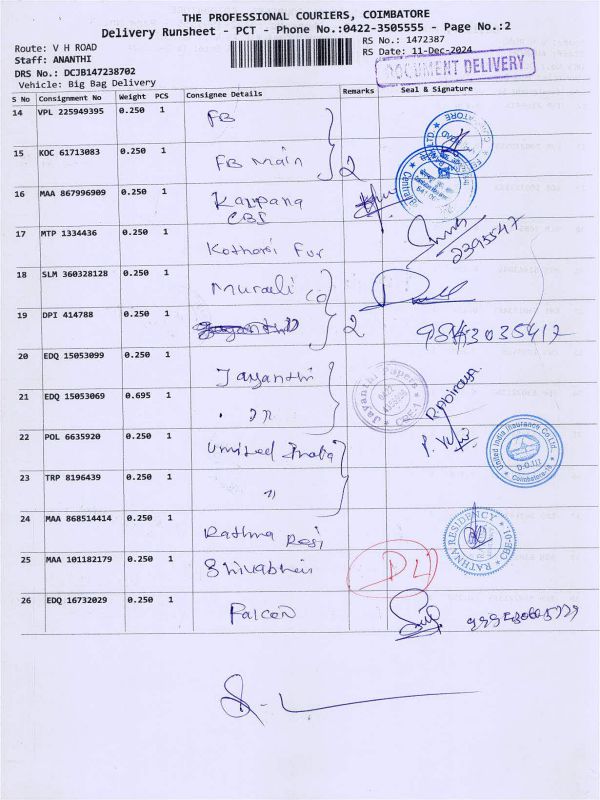 THE PROFESSIONAL COURIERS, COIMBATORE
Delivery Runsheet - PCT - Phone No.:0422-3505555 - Page No.:2
Route: V H ROAD
RS No.: 1472387
Staff: ANANTHI
RS Date: 11-Dec-2024
DRS No.: DCJB147238702
DOCUMENT DELIVERY
Vehicle: Big Bag Delivery
S No Consignment No Weight PCS Consignee Details Remarks Seal & Signature
14 VPL 225949395 0.250 1 FB
15 KOC 61713083 0.250 1 FB Main 2
16 MAA 867996909 0.250 1 Kalpana
CBS
17 MTP 1334436 0.250 1 Kothari Fur
2395547
18 SLM 360328128 0.250 1 Murali Co
19 DPI 414788 0.250 1 2
20 EDQ 15053099 0.250 1 Jayanthi
21 EDQ 15053069 0.695 1 "
Jayanthi Papers
CBE-1
22 POL 6635920 0.250 1 United India
United India Insurance Co.Ltd.
D.O.III
Coimbatore-18
23 TRP 8196439 0.250 1 "
24 MAA 868514414 0.250 1 Rathna Resi
RATHNA RESIDENCY
CBE-01
25 MAA 101182179 0.250 1 Shivabheis DL
26 EDQ 16732029 0.250 1 Falcon